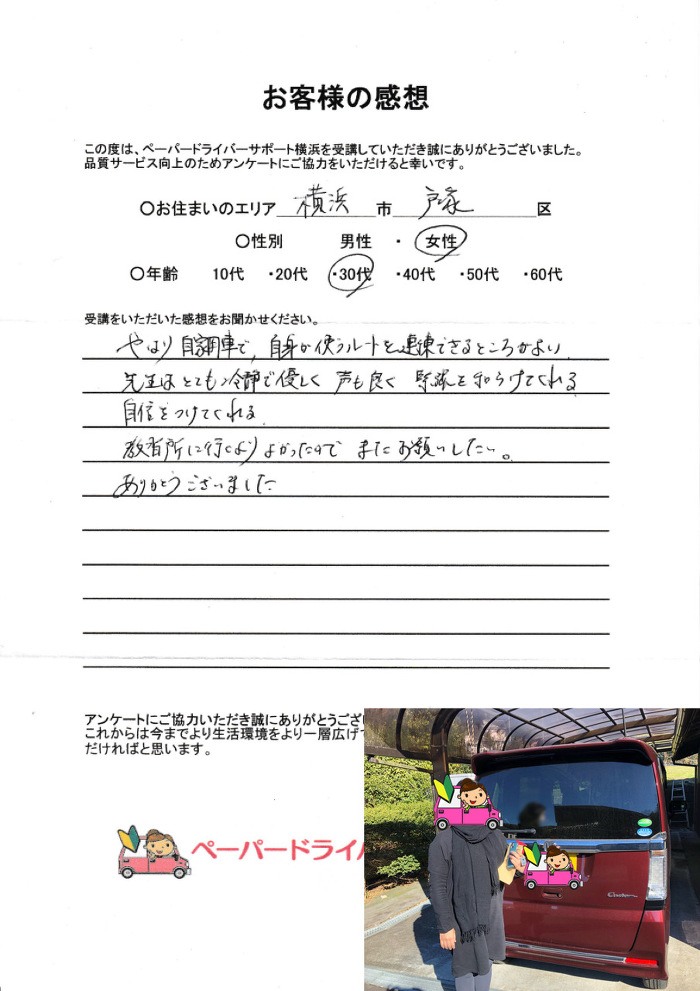 お客様の感想
この度は、ペーパードライバーサポート横浜を受講していただき誠にありがとうございました。
品質サービス向上のためアンケートにご協力をいただけると幸いです。
〇お住まいのエリア 横浜 市 戸塚 区
〇性別 男性 ・ 女性
〇年齢 10代 ・20代 ・30代 ・40代 ・50代 ・60代
受講をいただいた感想をお聞かせください。
やはり自家用車で、自身が使うルートを運転できるところがよい。
先生はとても冷静で優しく 声も良く 緊張を和らげてくれる
自信をつけてくれる
教習所に行くよりよかったので またお願いしたい。
ありがとうございました
アンケートにご協力いただき誠にありがとうござい
これからは今までより生活環境をより一層広げて
だければと思います。
ペーパードライバ
Custom